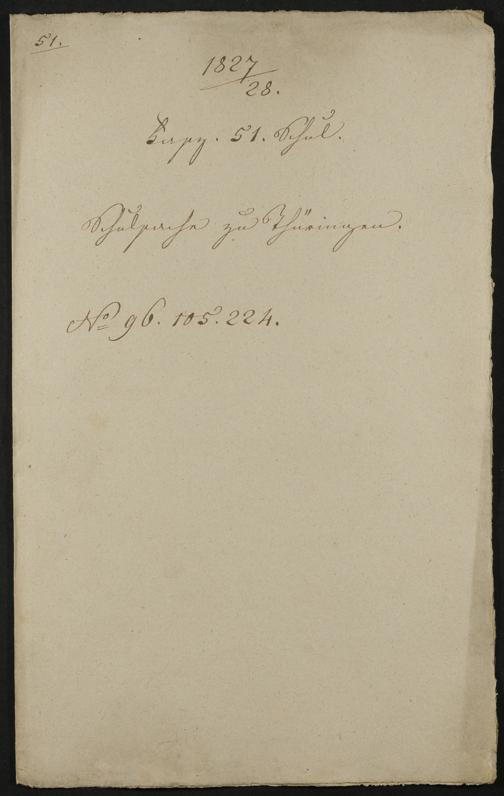 51.
1827
28.
Capp. 51. Schul.
Schulsache zu Thüringen.
No 96. 105. 224.